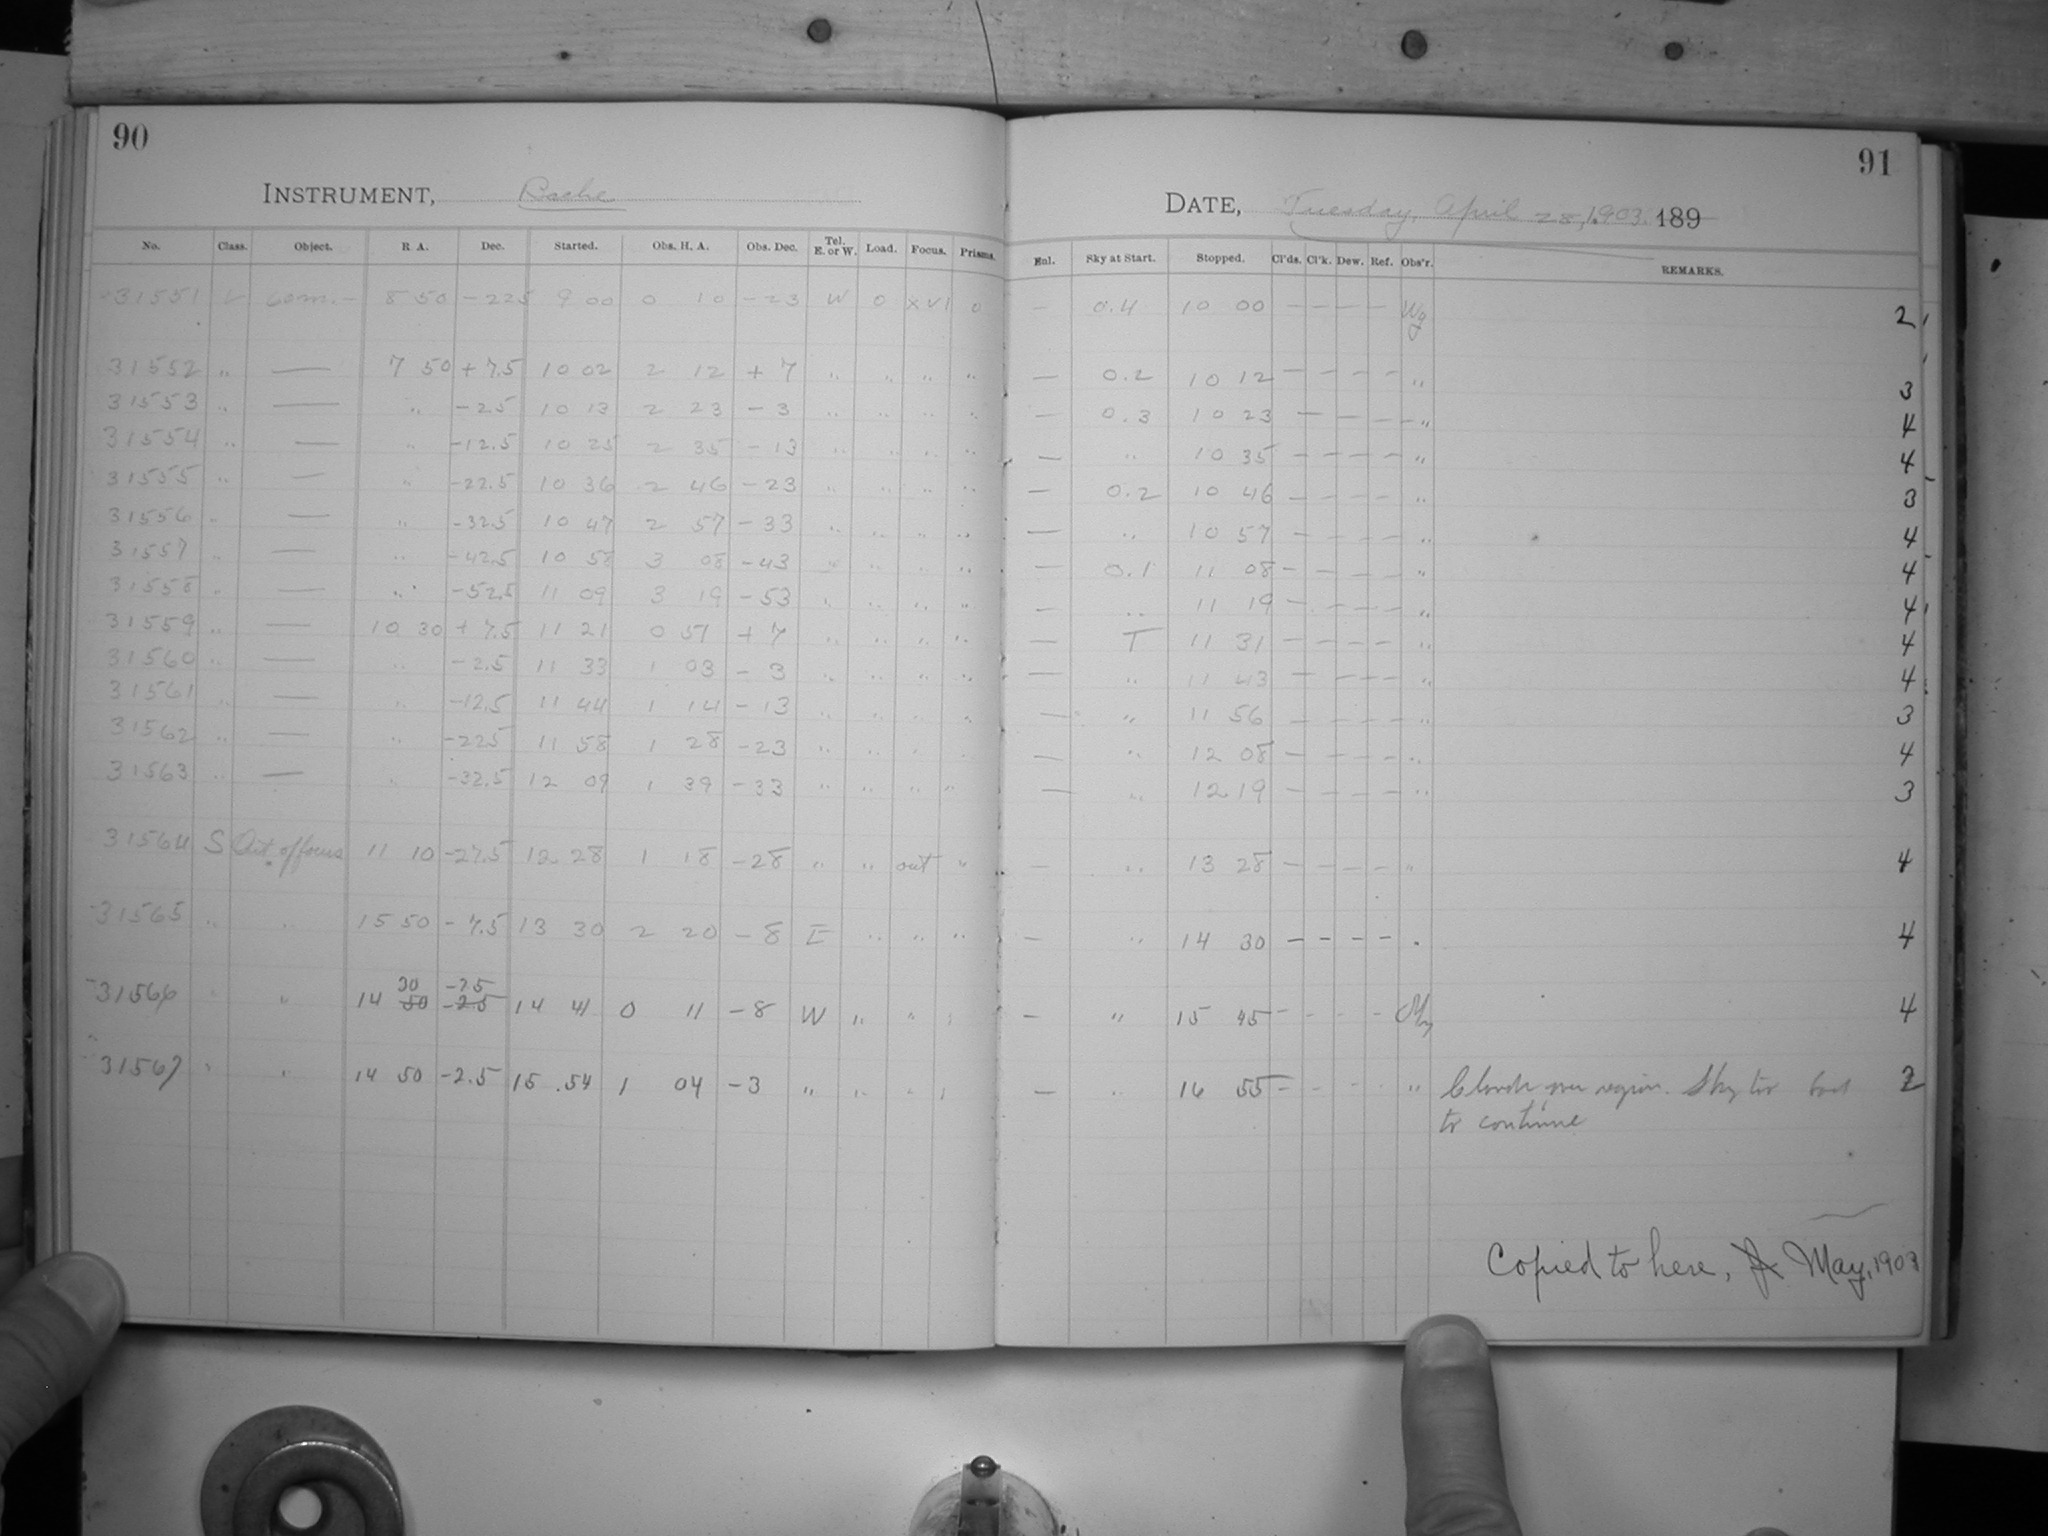 90
INSTRUMENT, Bache
No. Class. Object. R A. Dec. Started. Obs. H. A. Obs. Dec. Tel. E. or W. Load. Focus. Prisms.
31551 L Com. - 8 50 -22.5 9 00 0 10 -23 W 0 XVI 0
31552 " — 7 50 +7.5 10 02 2 12 +7 " " " "
31553 " — " -2.5 10 13 2 23 -3 " " " "
31554 " — " -12.5 10 25 2 35 -13 " " " "
31555 " — " -22.5 10 36 2 46 -23 " " " "
31556 " — " -32.5 10 47 2 57 -33 " " " "
31557 " — " -42.5 10 58 3 08 -43 " " " "
31558 " — " -52.5 11 09 3 19 -53 " " " "
31559 " — 10 30 +7.5 11 21 0 51 +7 " " " "
31560 " — " -2.5 11 33 1 03 -3 " " " "
31561 " — " -12.5 11 44 1 14 -13 " " " "
31562 " — " -22.5 11 58 1 28 -23 " " " "
31563 " — " -32.5 12 09 1 39 -33 " " " "
31564 S Out of focus 11 10 -27.5 12 28 1 18 -28 " " out "
31565 " " 15 50 -7.5 13 30 2 20 -8 E " " "
30 -7.5
31566 " " 14 50 -2.5 14 41 0 11 -8 W " " "
31567 " " 14 50 -2.5 15 54 1 04 -3 " " " "
91
DATE, Tuesday, April 28, 1903. 189
Enl. Sky at Start. Stopped. Cl'ds. Cl'k. Dew. Ref. Obs'r. REMARKS.
— 0.4 10 00 — — — — Wg 2
— 0.2 10 12 — — — — " 3
— 0.3 10 23 — — — — " 4
— " 10 35 — — — — " 4
— 0.2 10 46 — — — — " 3
— " 10 57 — — — — " 4
— 0.1 11 08 — — — — " 4
— " 11 19 — — — — " 4
— T 11 31 — — — — " 4
— " 11 43 — — — — " 4
— " 11 56 — — — — " 3
— " 12 08 — — — — " 4
— " 12 19 — — — — " 3
— " 13 28 — — — — " 4
— " 14 30 — — — — " 4
— " 15 45 — — — — 4
— " 16 55 — — — — " Clouds over region. Sky too bad 2
to continue
Copied to here, May, 1903